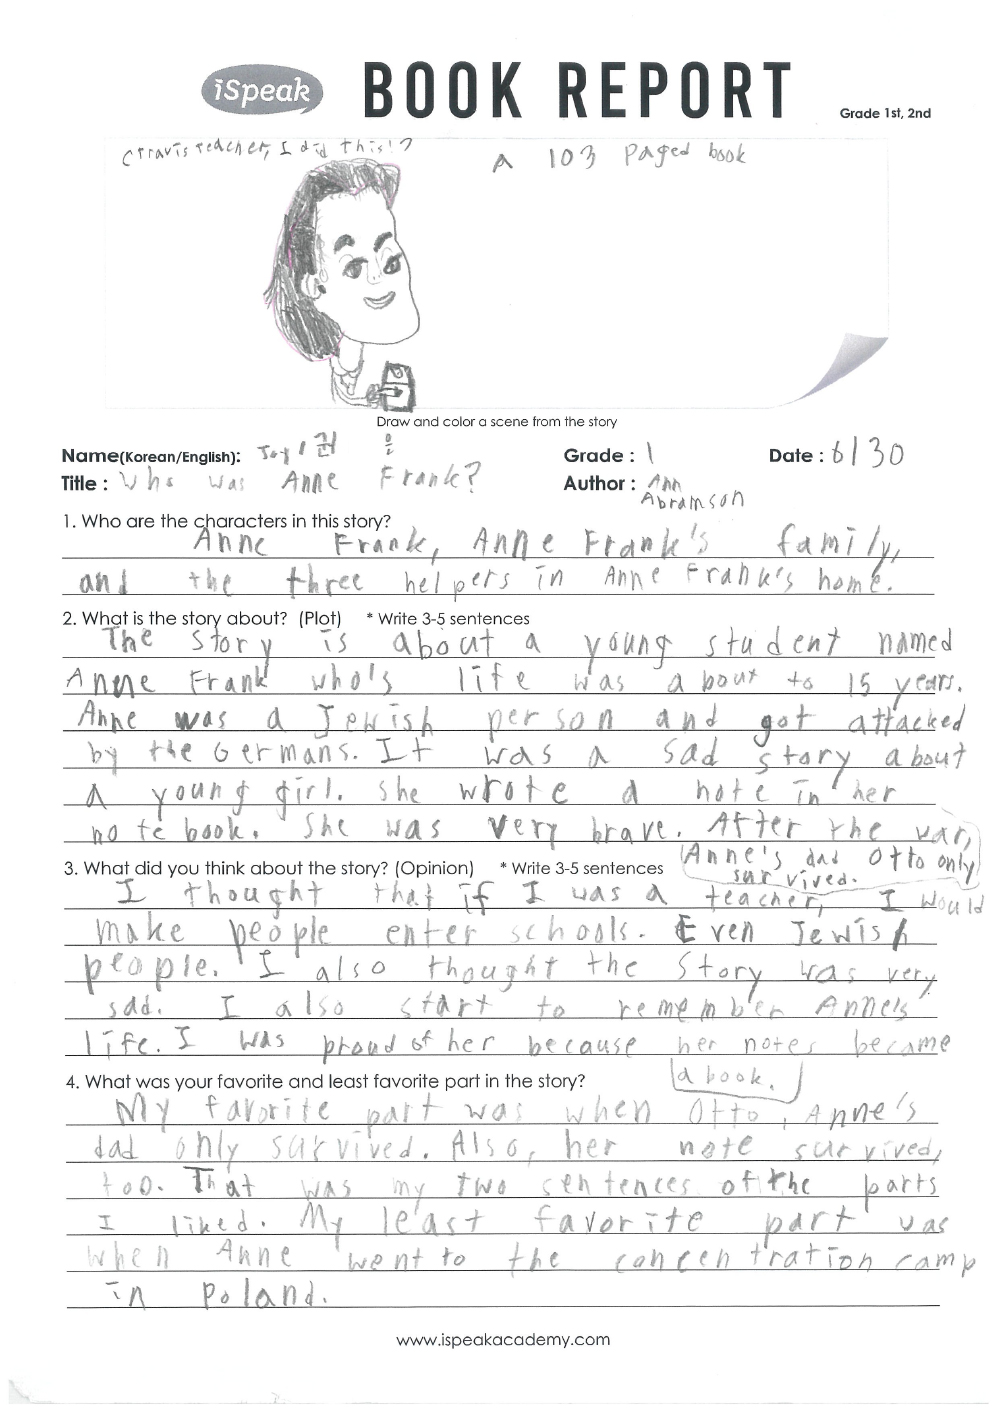 iSpeak
BOOK REPORT
Grade 1st, 2nd
(Travis teacher, I did this!)
A 103 Paged book
Draw and color a scene from the story
Name(Korean/English):
Grade : 1
Date : 6/30
Title : Who was Anne Frank?
Author : Ann
Abramson
1. Who are the characters in this story?
Anne Frank, Anne Frank's family,
and the three helpers in Anne Frank's home.
2. What is the story about? (Plot) * Write 3-5 sentences
The Story is about a young student named
Anne Frank who's life was about to 15 years.
Anne was a Jewish person and got attacked
by the Germans. It was a sad story about
a young girl. She wrote a note in her
note book. She was very brave. After the war,
Anne's dad Otto only
survived.
3. What did you think about the story? (Opinion) * Write 3-5 sentences
I thought that if I was a teacher, I would
make people enter schools. Even Jewish
people. I also thought the Story was very
sad. I also start to remember Anne's
life. I was proud of her because her notes became
a book.
4. What was your favorite and least favorite part in the story?
My favorite part was when Otto, Anne's
dad only survived. Also, her note survived,
too. That was my two sentences of the parts
I liked. My least favorite part was
when Anne went to the concentration camp
in Poland.
www.ispeakacademy.com